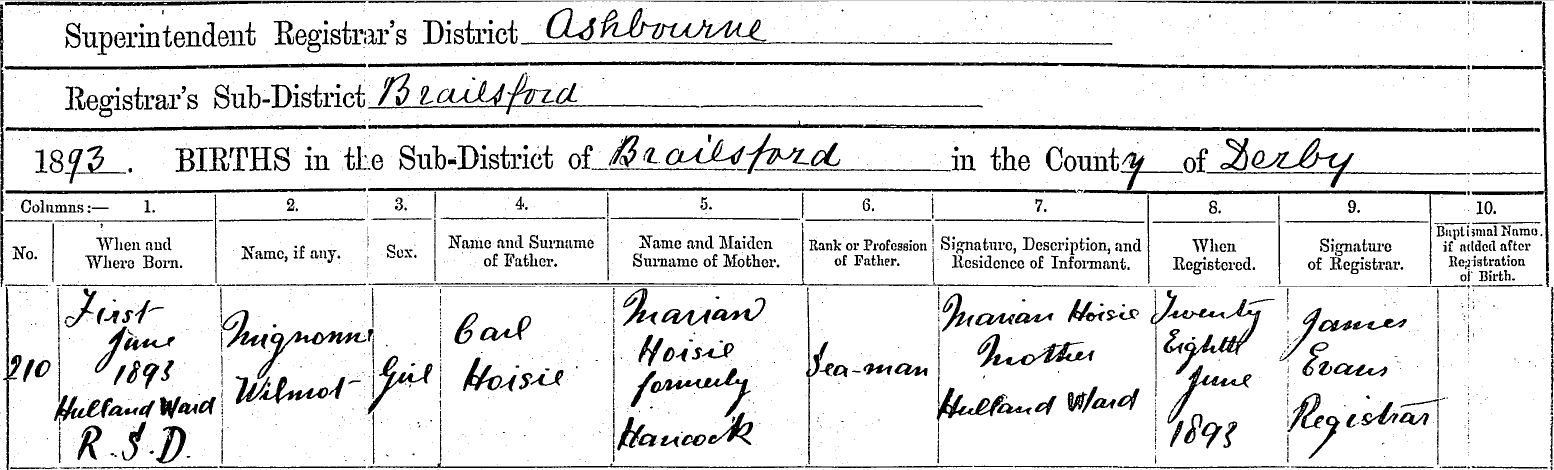 Superintendent Registrar's District Ashbourne
Registrar's Sub-District Brailsford
1893. BIRTHS in the Sub-District of Brailsford in the County of Derby
Columns:— 1. 2. 3. 4. 5. 6. 7. 8. 9. 10.
No.
When and
Where Born.
Name, if any.
Sex.
Name and Surname
of Father.
Name and Maiden
Surname of Mother.
Rank or Profession
of Father.
Signature, Description, and
Residence of Informant.
When
Registered.
Signature
of Registrar.
Baptismal Name,
if added after
Registration
of Birth.
210
First
June
1893
Hulland Ward
R.S.D.
Mignonne
Wilmot
Girl
Carl
Hoisie
Marian
Hoisie
formerly
Hancock
Sea-man
Marian Hoisie
Mother
Hulland Ward
Twenty
Eighth
June
1893
James
Evans
Registrar